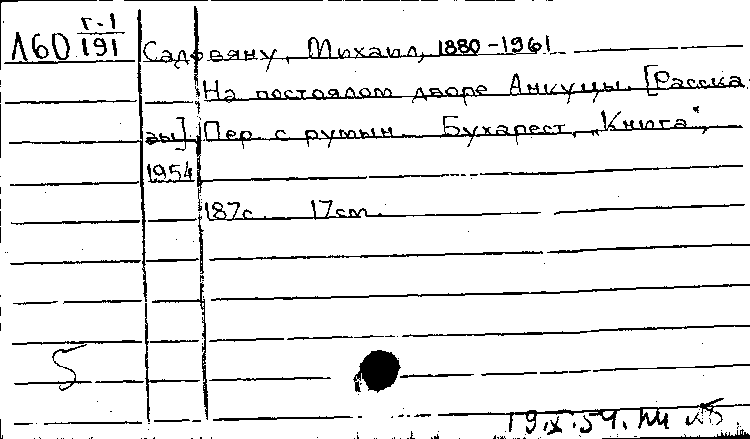 Л60 г.1/191 Садовяну, Михаил, 1880-1961
На постоялом дворе Анкуцы. [Расска-
зы]. Пер. с румын. Бухарест, „Книга",
1954
187с. 17cm.
5
19.X.54.